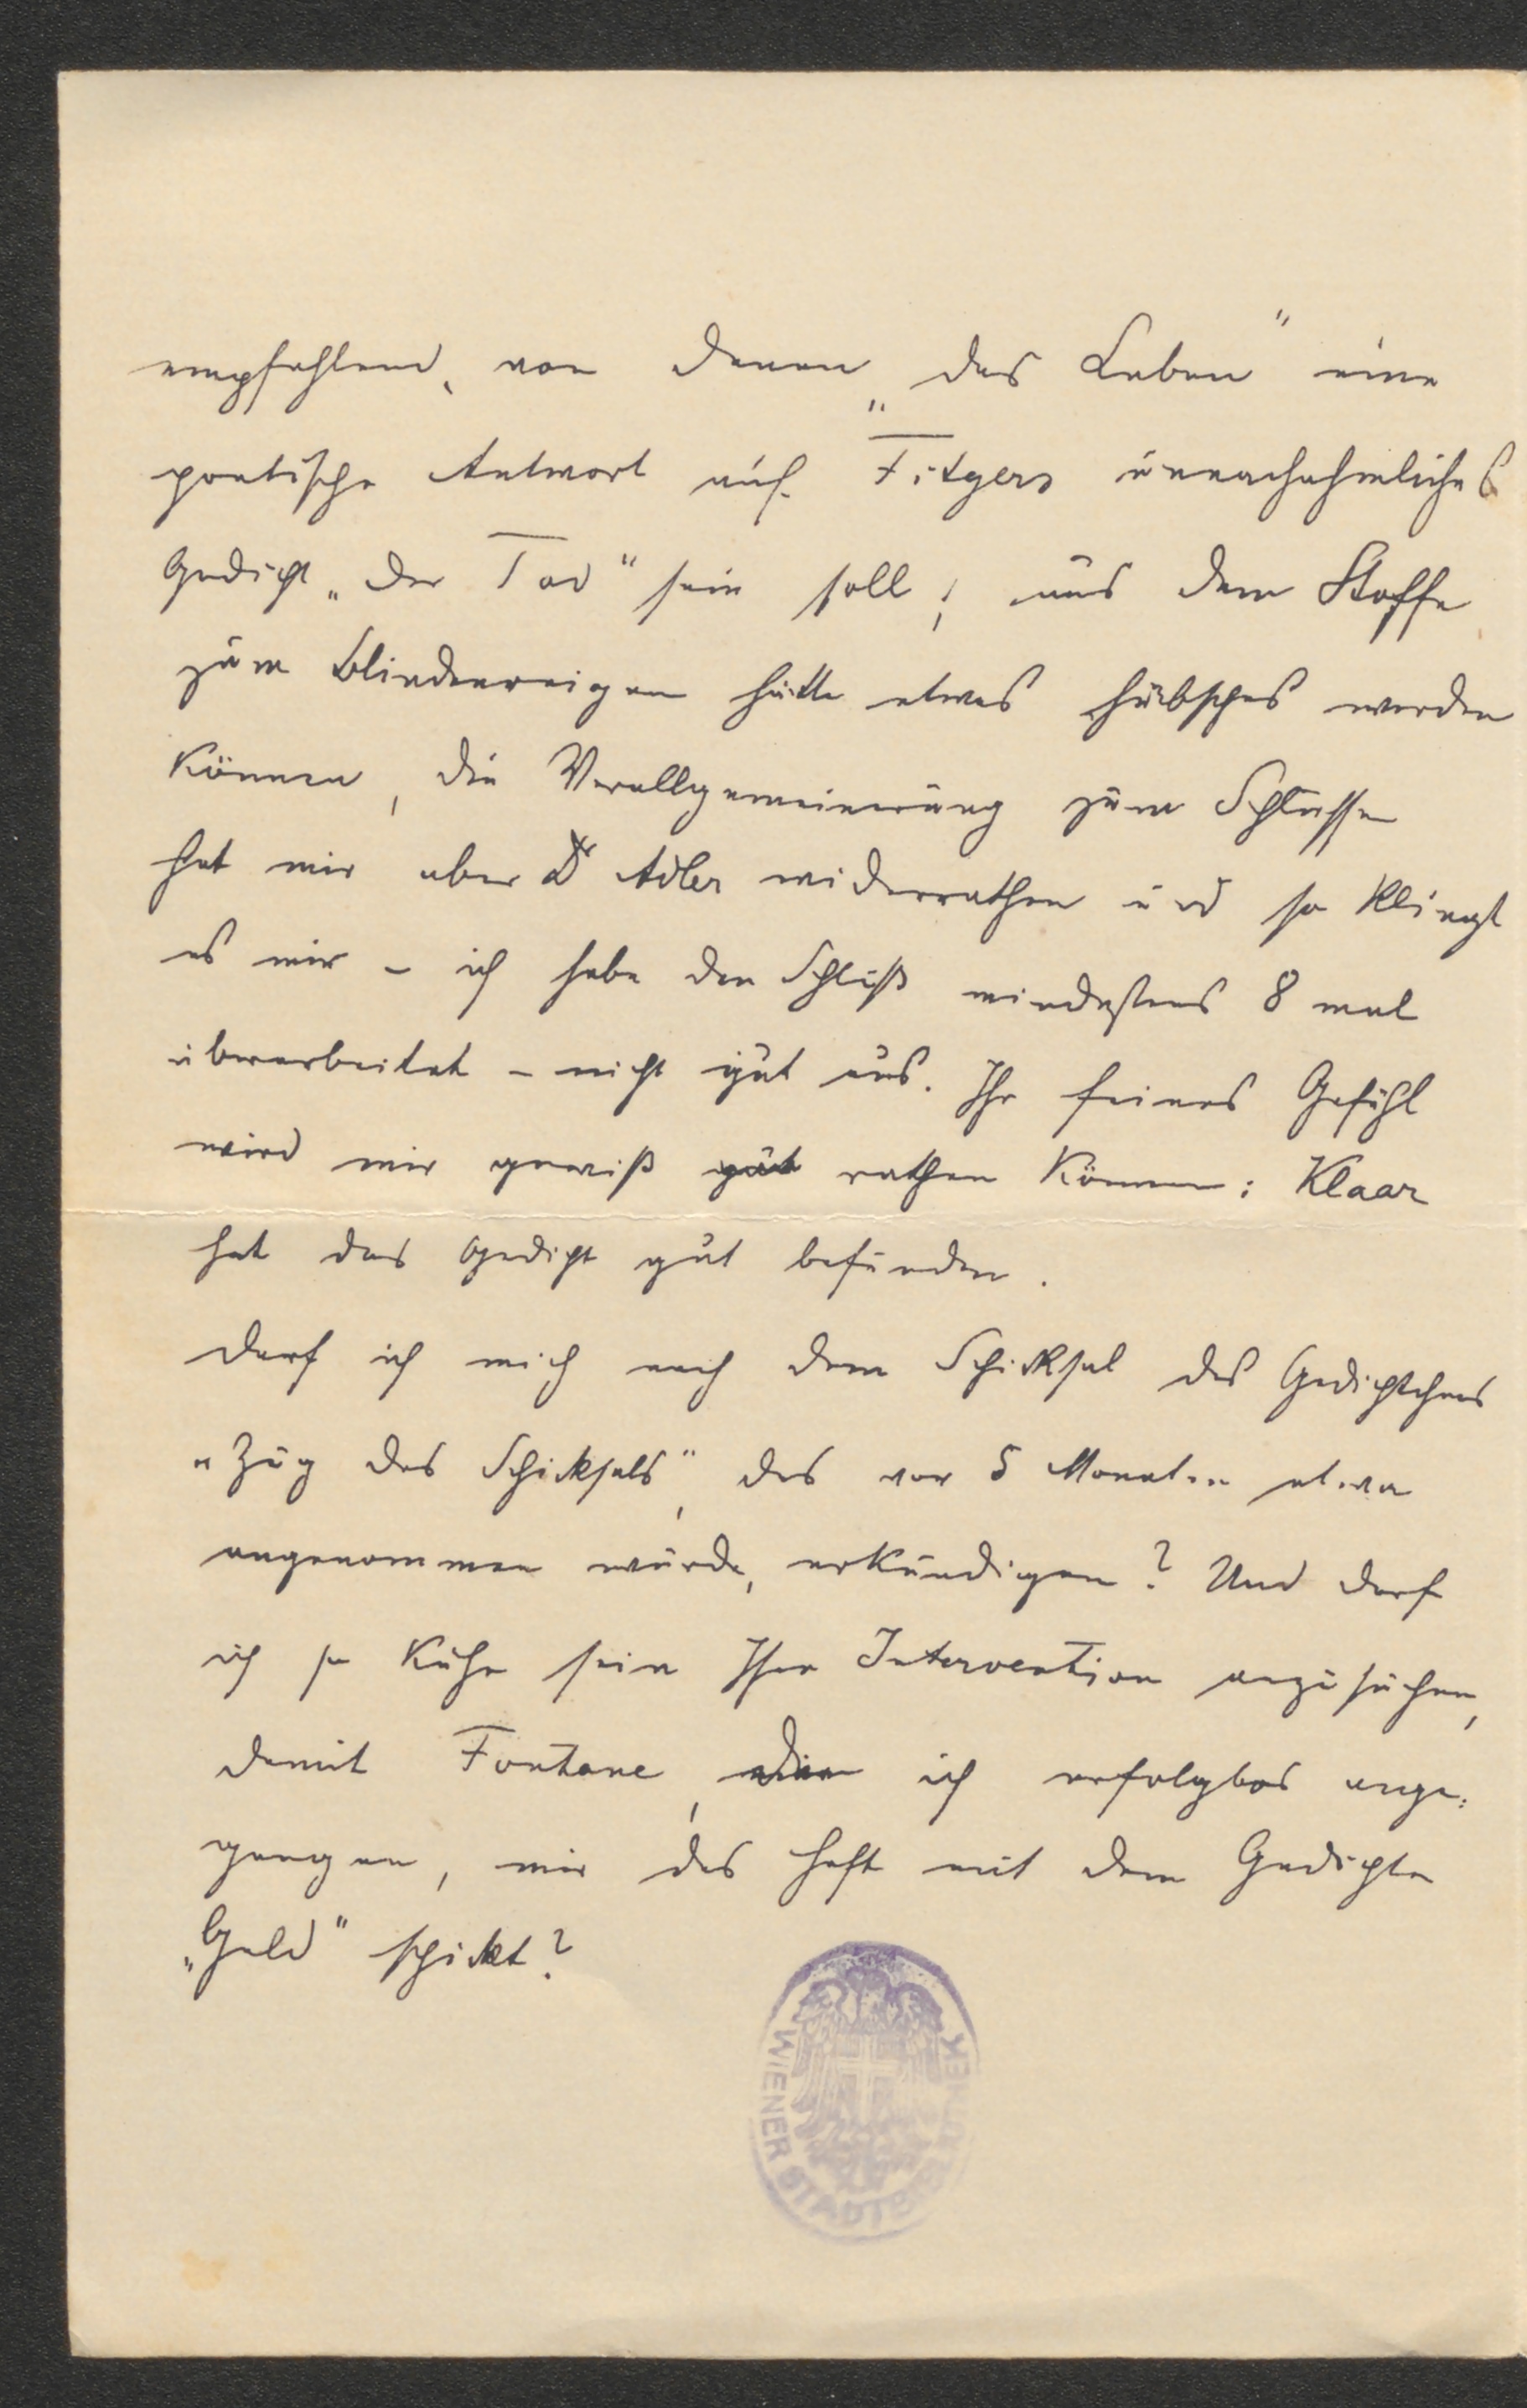 empfehlend, von denen „das Leben“ eine
poetische Antwort auf Fitgers unnachahmliches
Gedicht „der Tod“ sein soll; aus dem Stoffe
zum Blindenreigen hätte etwas hübsches werden
können, die Verallgemeinerung zum Schlusse
hat mir aber Dr Adler widerrathen und so klingt
es mir – ich habe den Schluß mindestens 8 mal
überarbeitet – nicht gut aus. Ihr feines Gefühl
wird mir gewiß gut rathen können: Klaar
hat das Gedicht gut befunden.
Darf ich mich nach dem Schicksal des Gedichtchens
„Zug des Schicksals“, das vor 5 Monaten etwa
angenommen wurde, erkundigen? Und darf
ich so kühn sein Ihre Intervention anzusuchen,
damit Fontane, den ich erfolglos ange:
gangen, mir das Heft mit dem Gedichte
„Geld“ schickt?
WIENER STADTBIBLIOTHEK